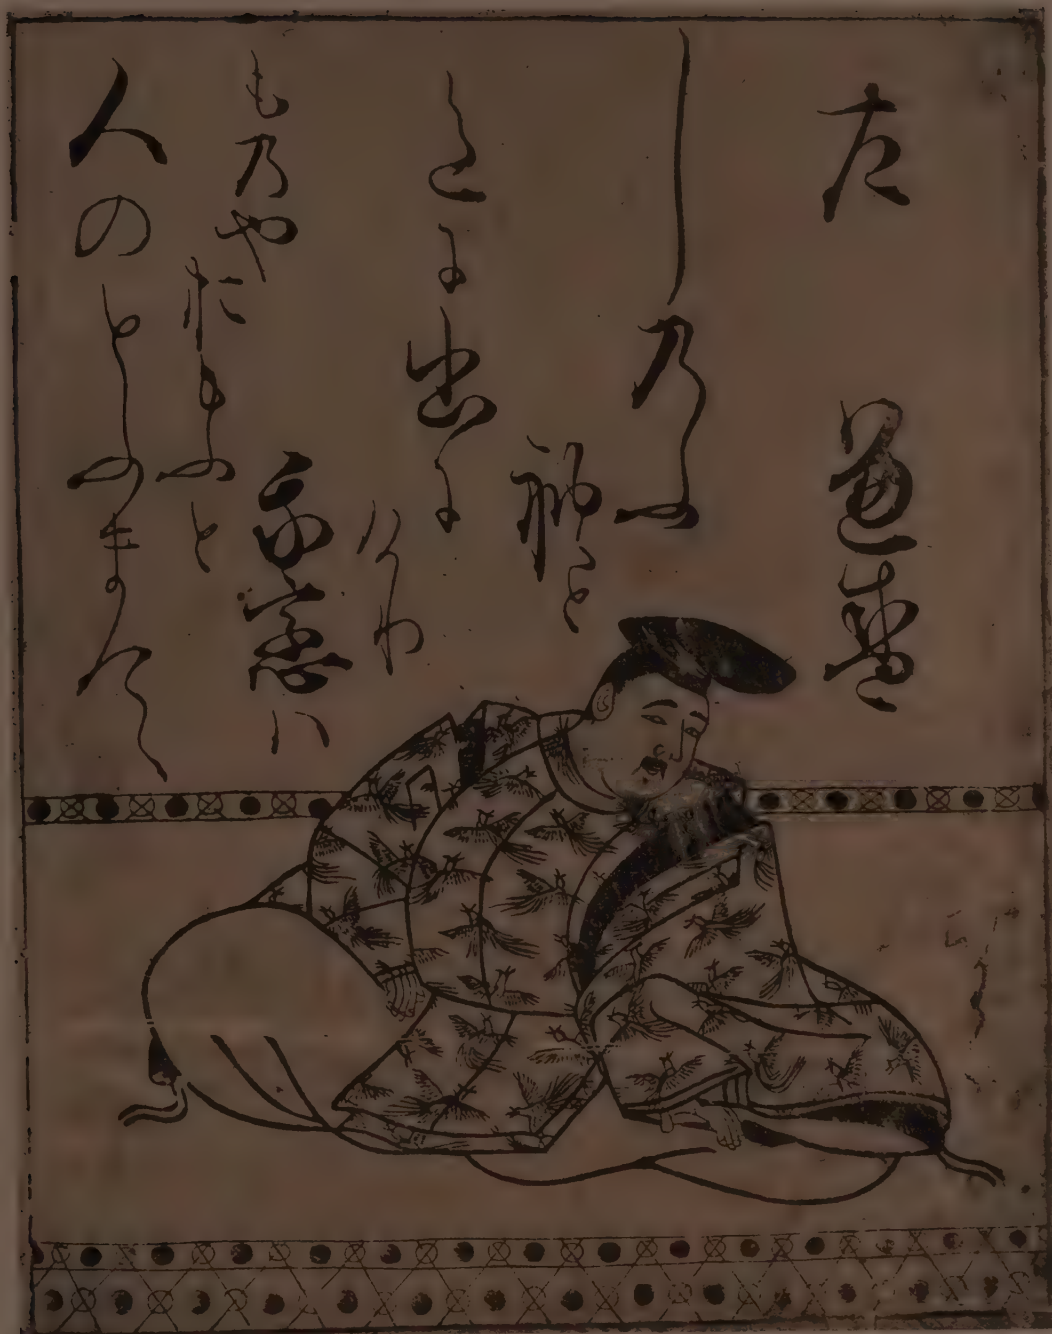 左 兼盛
し乃ふ
禮と
色に出に
けり
我恋ハ
も乃や
おもふと
人のとふまて